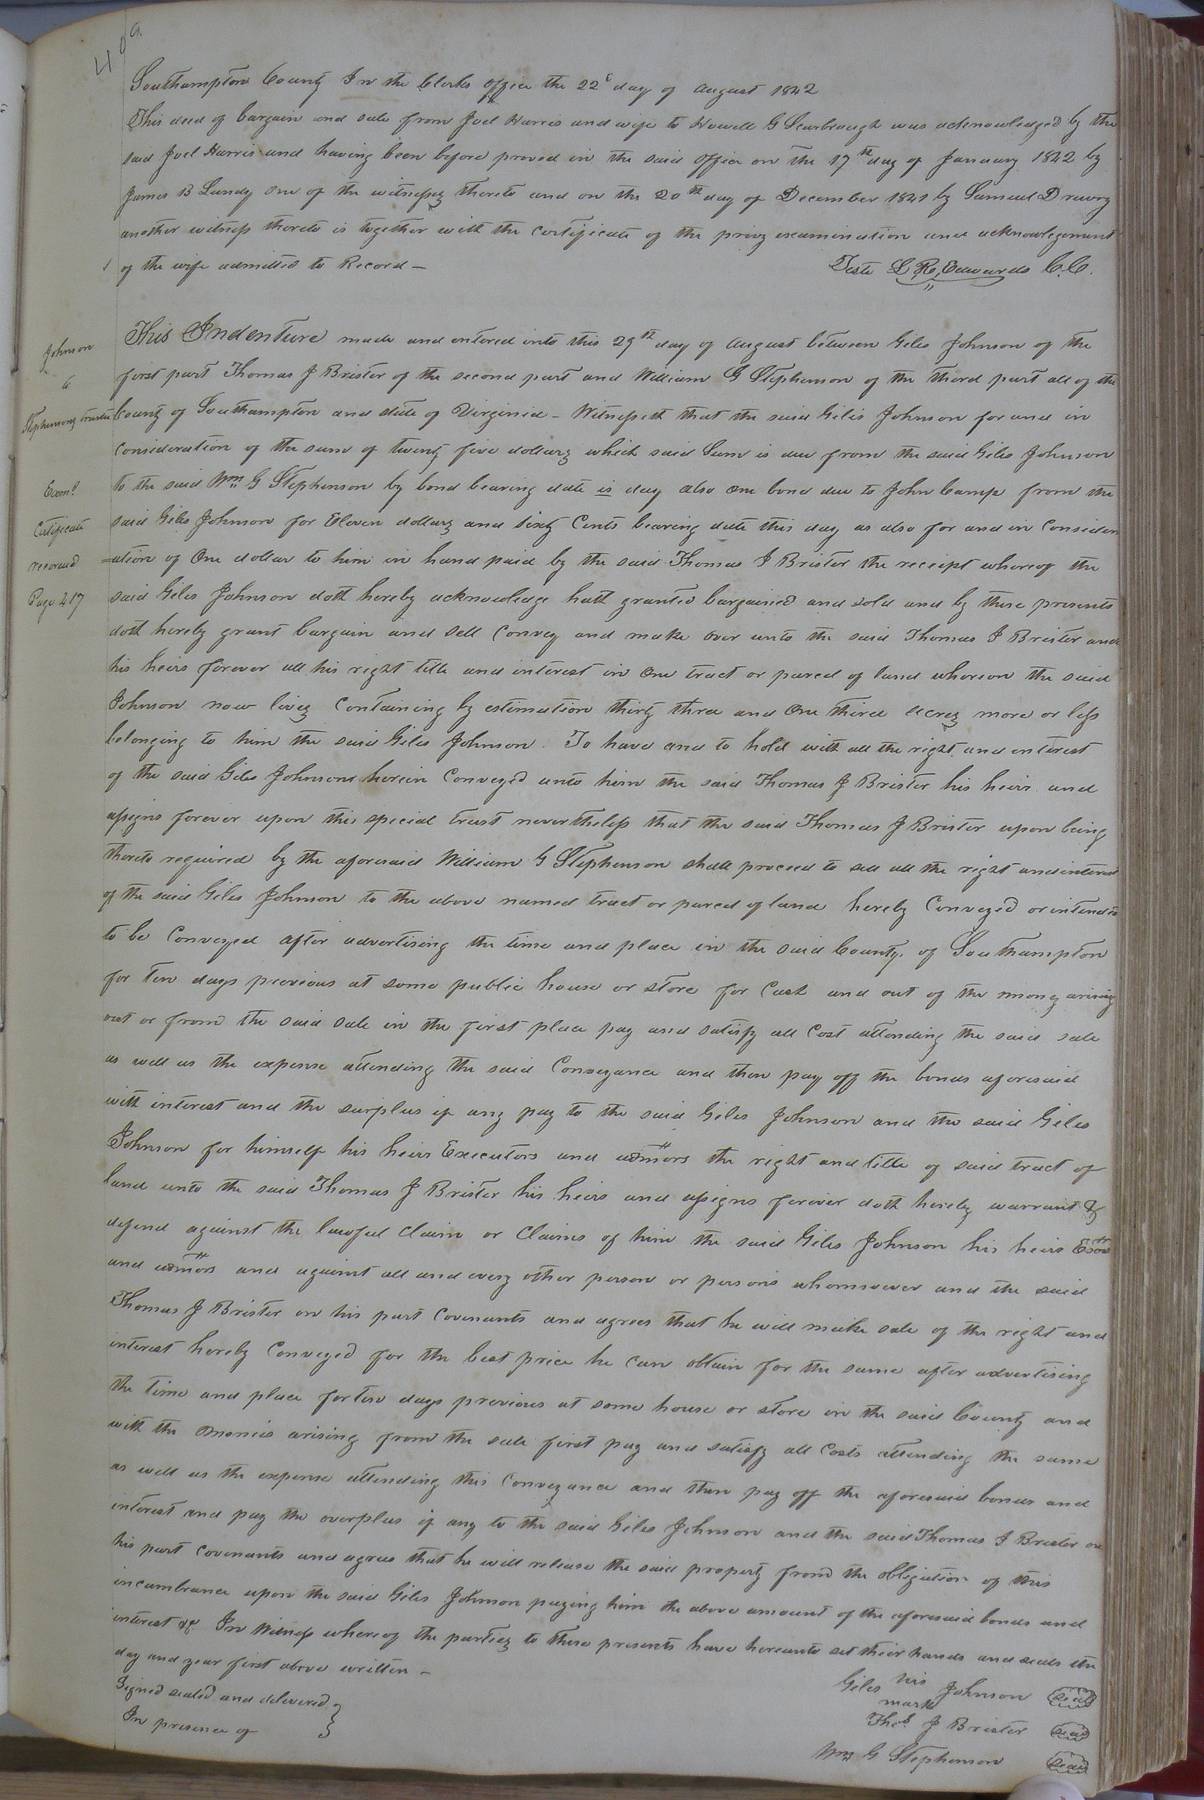 Southampton County In the Clerks office the 22d day of August 1842
This deed of bargain and sale from Joel Harris and wife to Howell G Scarbrough was acknowledged by the
said Joel Harris and having been before proved in the said office on the 17th day of January 1842 by
James B Lundy one of the witnesses thereto and on the 20th day of December 1841 by Samuel Drewry
another witness thereto is together with the certificate of the privy examination and acknowlegement
of the wife admitted to Record –
Teste L R Edwards C.C.
Johnson
Stephensons trustee
Examd
Certificate
recorded
Page 417
This Indenture made and entered into this 29th day of August between Giles Johnson of the
first part Thomas J Brister of the second part and William G Stephenson of the third part all of the
County of Southampton and state of Virginia – Witnesseth that the said Giles Johnson for and in
consideration of the sum of twenty five dollars which said Sum is due from the said Giles Johnson
to the said Wm G Stephenson by bond bearing date is day also one bond due to John Camp from the
said Giles Johnson for Eleven dollars and sixty Cents bearing date this day as also for and in Consider
=ation of One dollar to him in hand paid by the said Thomas J Brister the receipt whereof the
said Giles Johnson doth hereby acknowledge hath granted bargained and sold and by these presents
doth hereby grant bargain and sell Convey and make over unto the said Thomas J Brister and
his heirs forever all his right title and interest in One tract or parcel of land whereon the said
Johnson now lives Containing by estimation thirty three and One third acres more or less
belonging to him the said Giles Johnson. To have and to hold with all the right and interest
of the said Giles Johnsons herein Conveyed unto him the said Thomas J Brister his heirs and
assigns forever upon this special trust nevertheless that the said Thomas J Brister upon being
thereto required by the aforesaid William G Stephenson shall proceed to sell all the right and interest
of the said Giles Johnson to the above named tract or parcel of land hereby Conveyed or intended
to be Conveyed after advertising the time and place in the said County of Southampton
for ten days previous at some public house or store for Cash and out of the money arising
out or from the said sale in the first place pay and satisfy all Cost attending the said sale
as well as the expense attending the said Conveyance and then pay off the bonds aforesaid
with interest and the surplus if any pay to the said Giles Johnson and the said Giles
Johnson for himself his heirs Executors and admors the right and title of said tract of
land unto the said Thomas J Brister his heirs and assigns forever doth hereby warrant &
defend against the lawful Claim or Claims of him the said Giles Johnson his heirs Exors
and admors and against all and every other person or persons whomsoever and the said
Thomas J Brister on his part Covenants and agrees that he will make sale of the right and
interest hereby Conveyed for the best price he can obtain for the same after advertising
the time and place for ten days previous at some house or store in the said County and
with the monies arising from the sale first pay and satisfy all Costs attending the same
as well as the expense attending this Conveyance and then pay off the aforesaid bonds and
interest and pay the overplus if any to the said Giles Johnson and the said Thomas J Brister on
his part covenants and agrees that he will release the said property from the obligation of this
incumbrance upon the said Giles Johnson paying him the above amount of the aforesaid bonds and
interest &c In Witness whereof the parties to these presents have hereunto set their hands and seals the
day and year first above written –
Signed sealed and delivered
In presence of
Giles his mark Johnson Seal
Thos J Brister Seal
Wm G Stephenson Seal